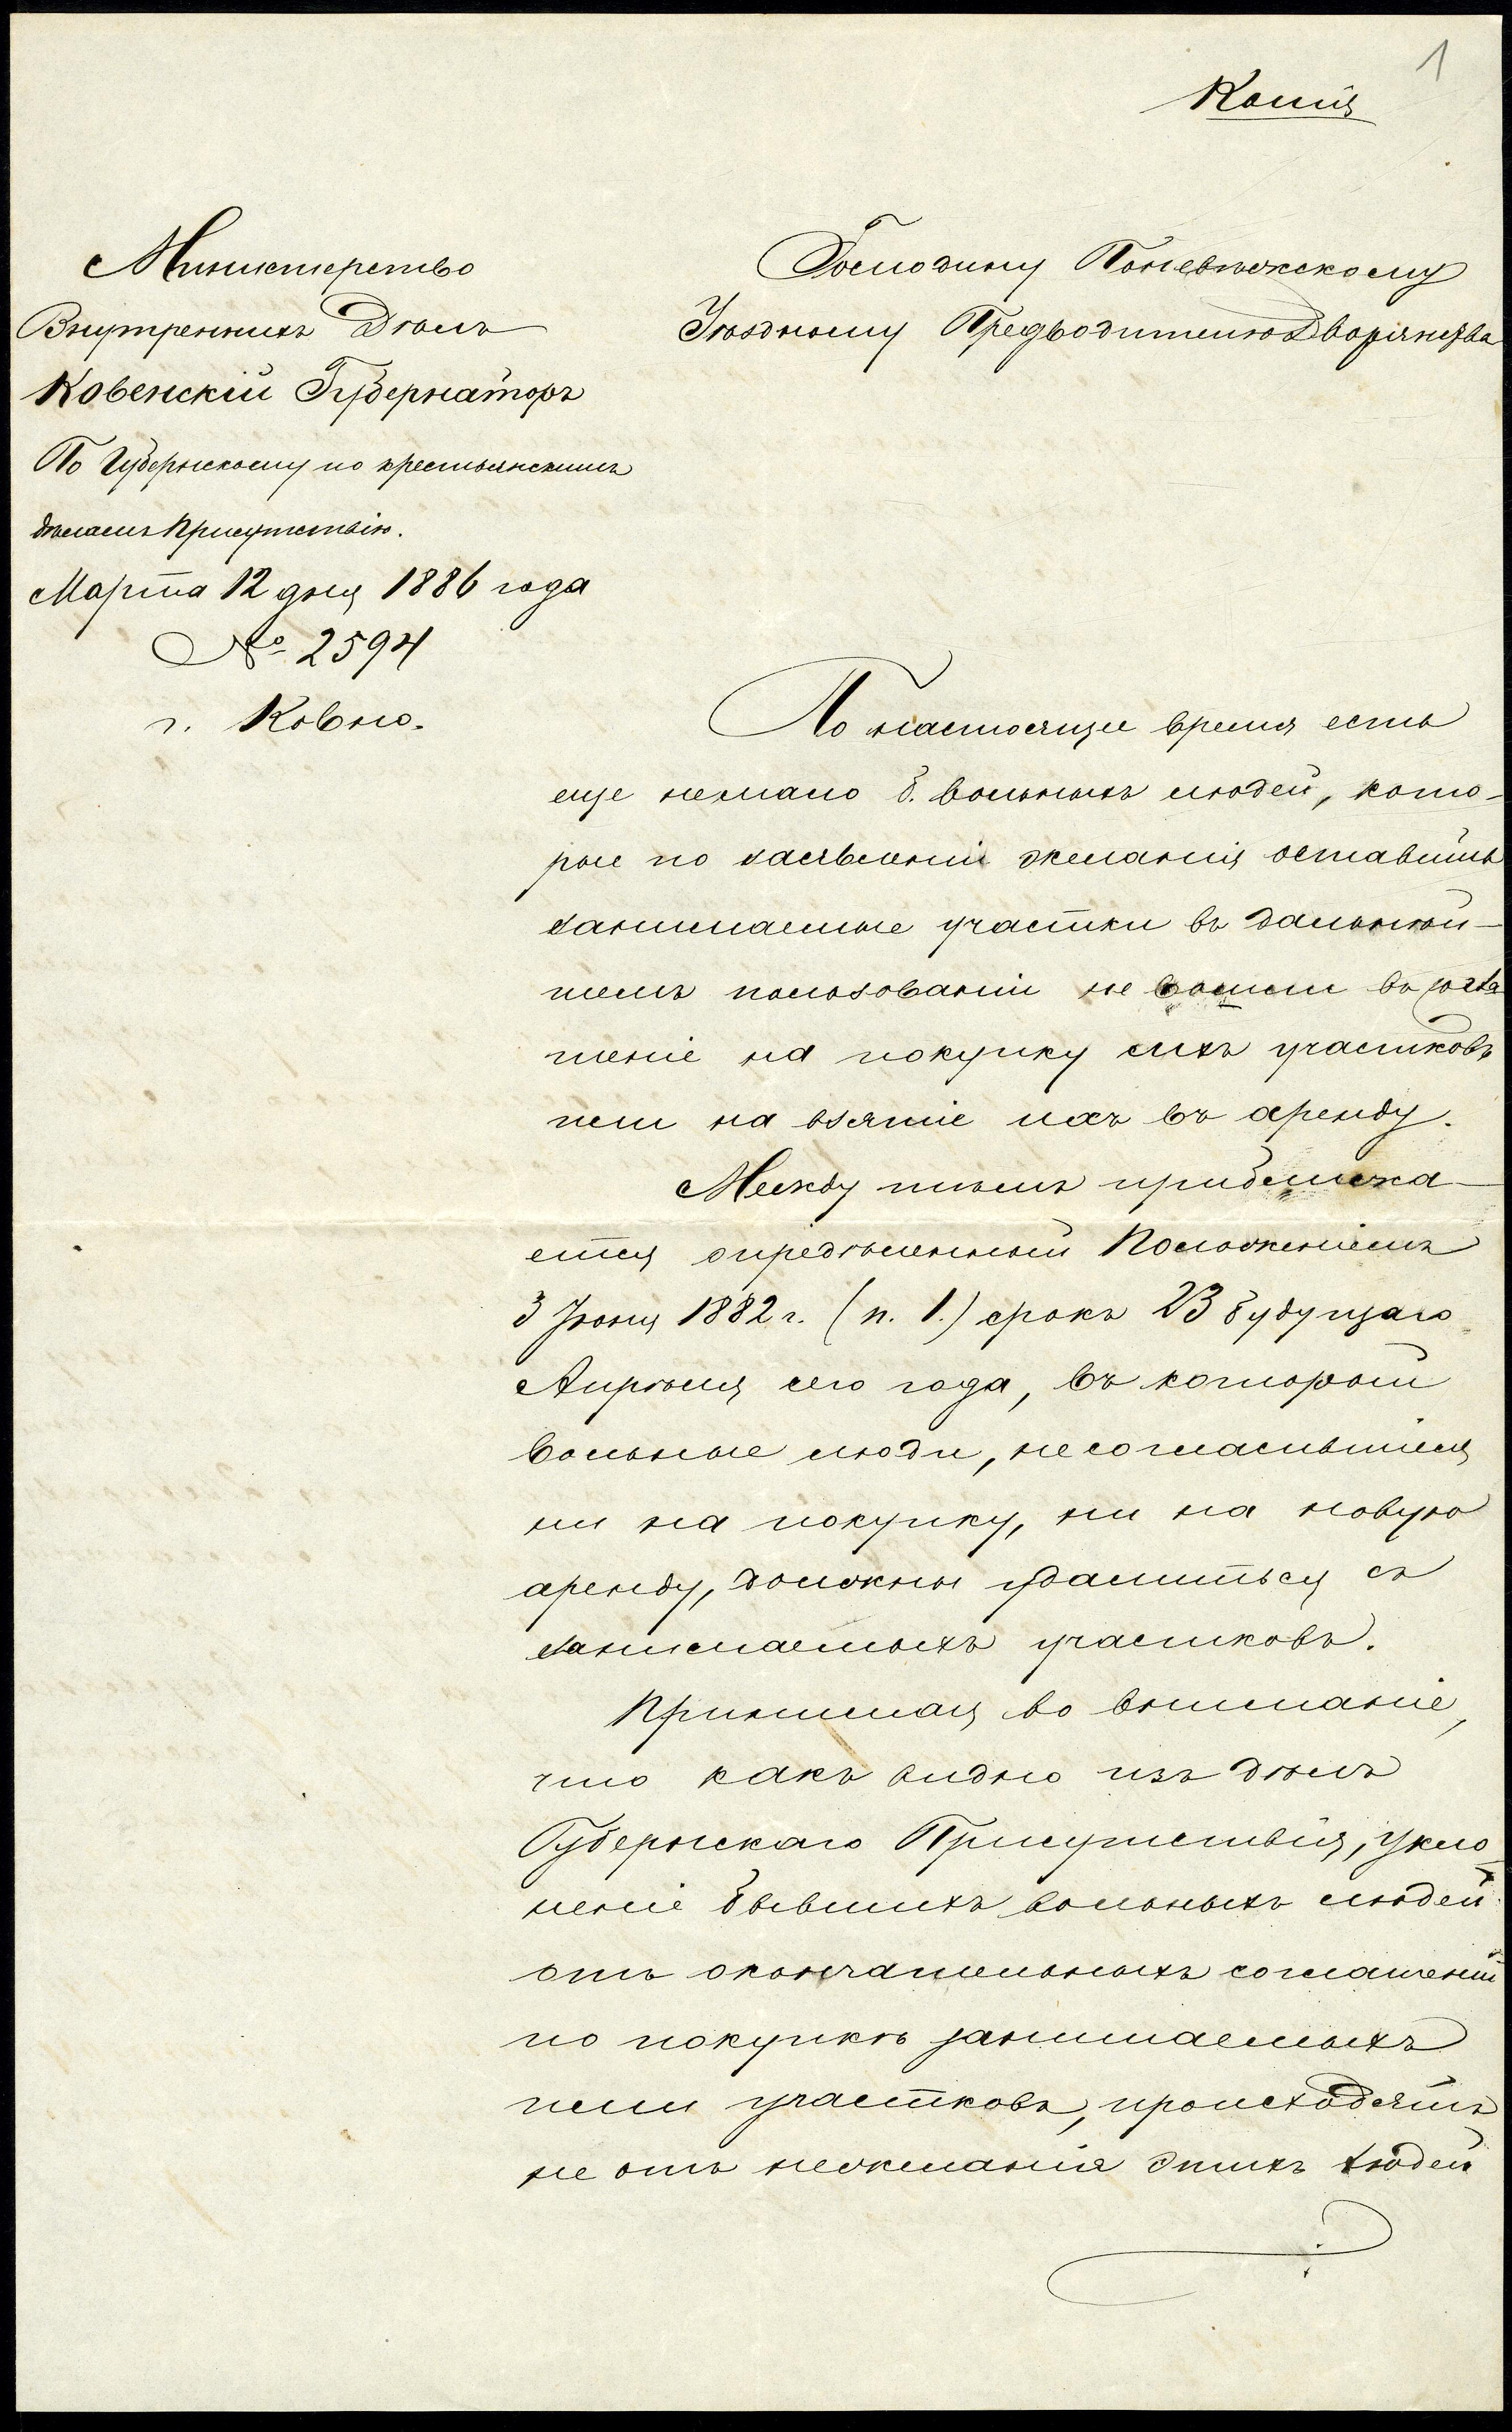 1
Копія
Министерство
Внутреннихъ Дѣлъ
Ковенскій Губернаторъ
По Губернскому по крестьянскимъ
дѣламъ Присутствію.
Марта 12 дня 1886 года
№ 2594
г. Ковно.
Господину Поневѣжскому
Уѣздному Предводителю Дворянства
По настоящее время есть
еще немало б. вольныхъ людей, кото-
рые по заявленіи желанія оставить
занимаемые участки въ дальнѣй-
шемъ пользованіи не вошли въ согла
шеніе на покупку сихъ участковъ
или на взятіе ихъ въ аренду.
Между тѣмъ приближа-
ется опредѣленный Положеніемъ
3 Іюня 1882 г. (п. 1.) срокъ 23 будущаго
Апрѣля сего года, въ который
вольные люди, несогласившіеся
ни на покупку, ни на новую
аренду, должны удалиться съ
занимаемыхъ участковъ.
Принимая во вниманіе,
что какъ видно изъ дѣлъ
Губернскаго Присутствія, укло-
неніе бывшихъ вольныхъ людей
отъ окончательныхъ соглашеній
по покупкѣ занимаемыхъ
ими участковъ, происходятъ
не отъ нежеланія этихъ людей